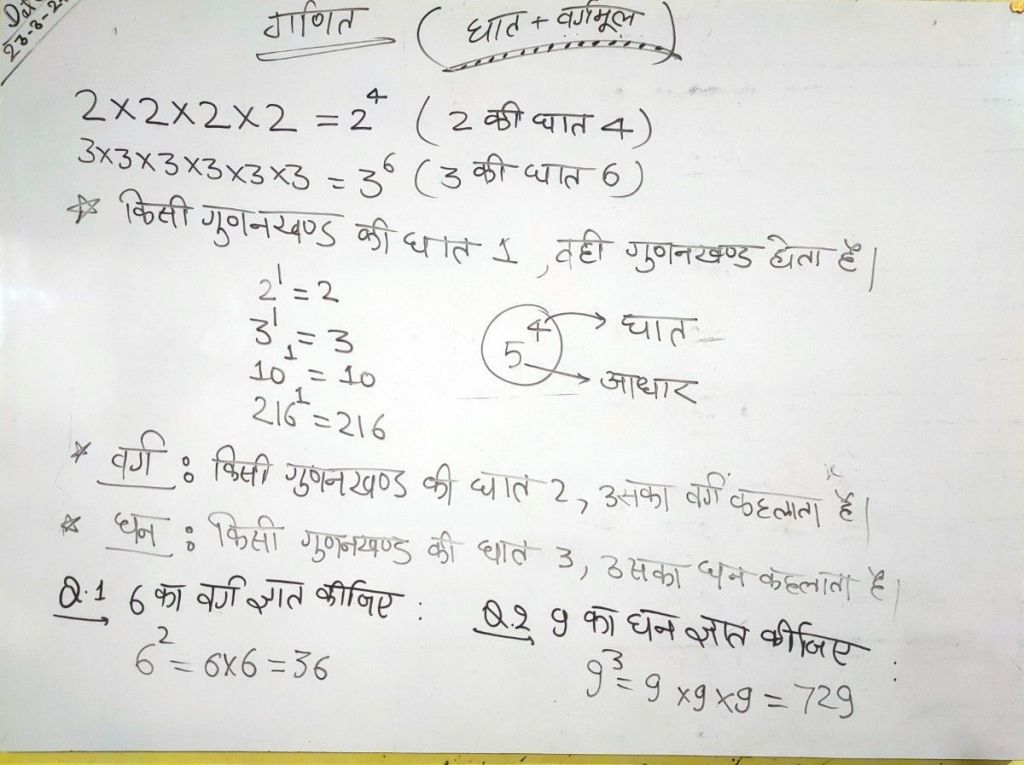 गणित ( घात + वर्गमूल )
23-3-2
2×2×2×2 = 2⁴ ( 2 की घात 4 )
3×3×3×3×3×3 = 3⁶ ( 3 की घात 6 )
☆ किसी गुणनखण्ड की घात 1 , वही गुणनखण्ड होता है।
2¹ = 2
3¹ = 3
10¹ = 10
216¹ = 216
5⁴ → घात
→ आधार
* वर्ग : किसी गुणनखण्ड की घात 2, उसका वर्ग कहलाता है।
* घन : किसी गुणनखण्ड की घात 3, उसका घन कहलाता है।
Q.1 6 का वर्ग ज्ञात कीजिए :
6² = 6×6 = 36
Q.2 9 का घन ज्ञात कीजिए :
9³ = 9 ×9 ×9 = 729